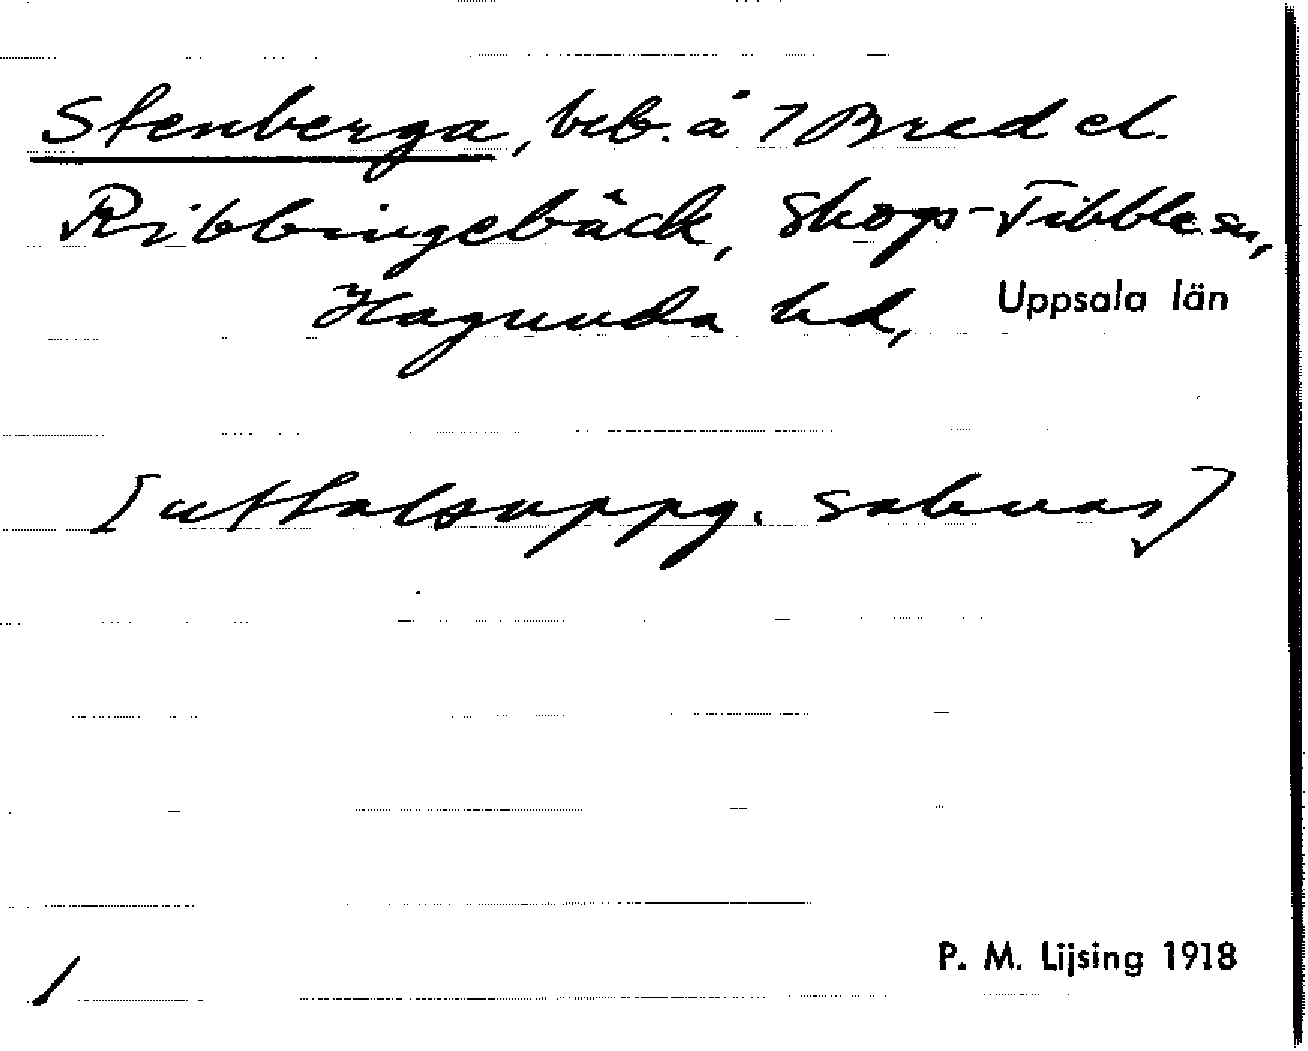 Stenberga, beb. å 7 Bred el.
Ribbingebäck, Skogs-Tibble sn,
Hagunda hd, Uppsala län
[uttalsuppg. saknas]
P. M. Lijsing 1918